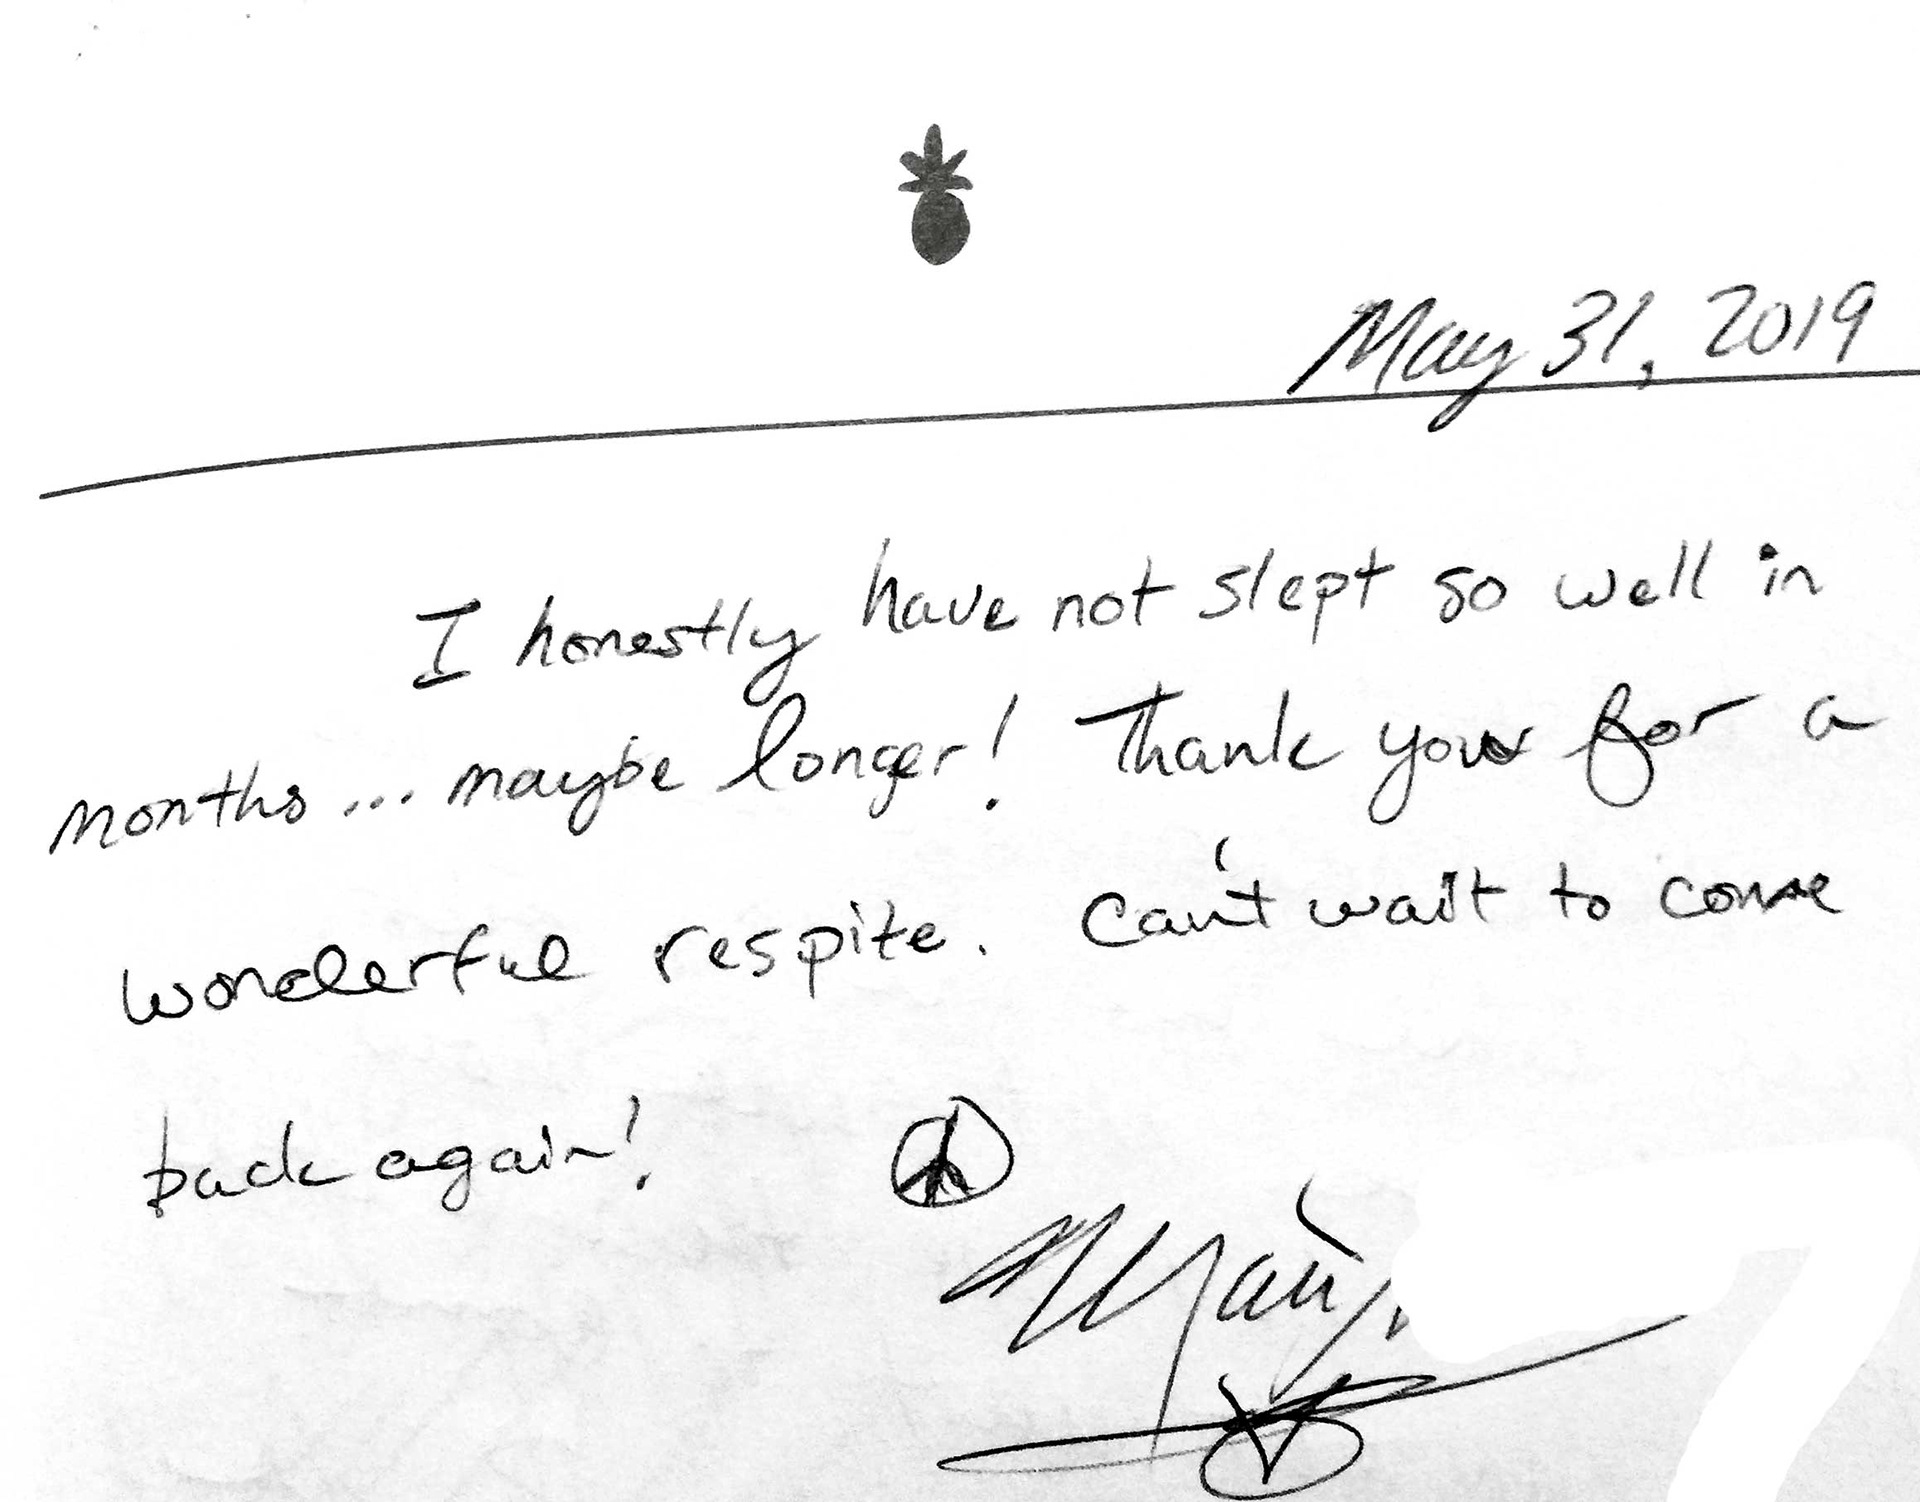 May 31, 2019
I honestly have not slept so well in
months... maybe longer! Thank you for a
wonderful respite. Can't wait to come
back again!